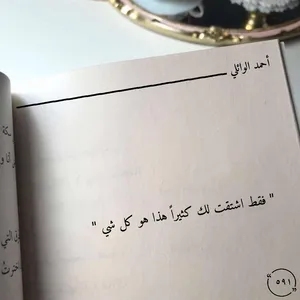 أحمد الوائلي
" فقط اشتقت لك كثيراً هذا هو كل شي "
٥٩١